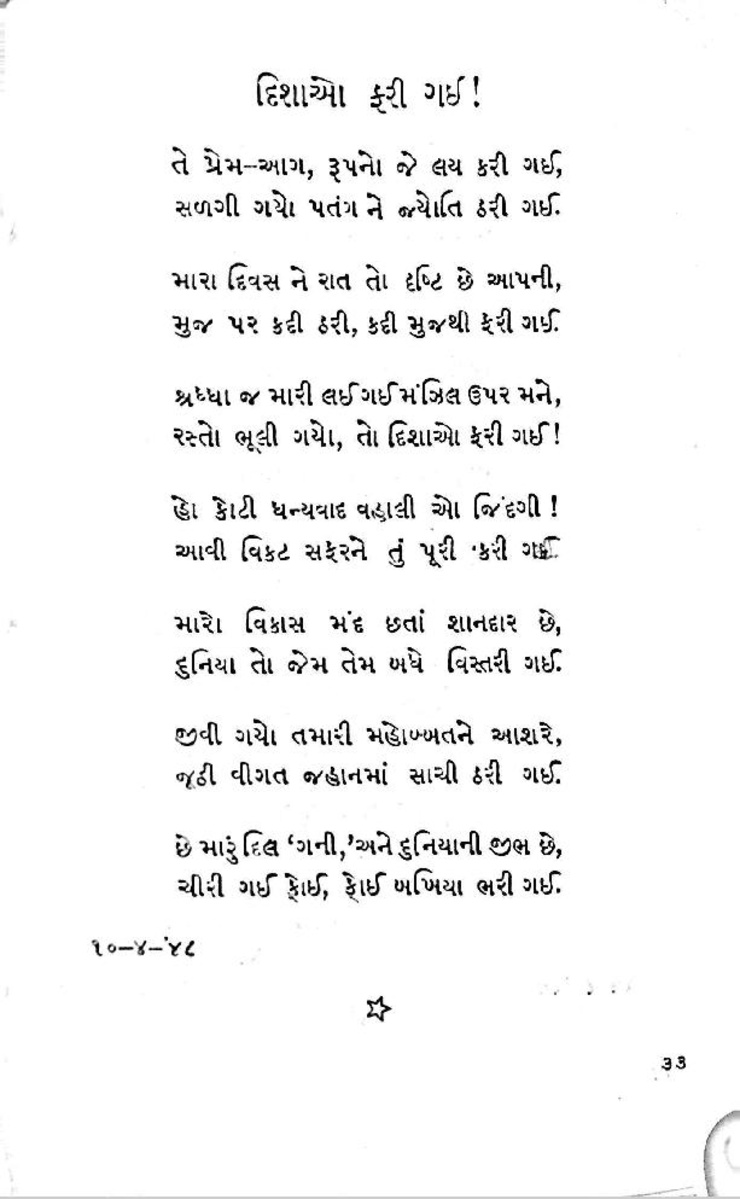 દિશાઓ ફરી ગઈ!
તે પ્રેમ-આગ, રૂપનો જે લય કરી ગઈ,
સળગી ગયો પતંગ ને જ્યોતિ ઠરી ગઈ.
મારા દિવસ ને રાત તો દૃષ્ટિ છે આપની,
મુજ પર કદી ઠરી, કદી મુજથી ફરી ગઈ.
શ્રધ્ધા જ મારી લઈ ગઈ મંઝિલ ઉપર મને,
રસ્તો ભૂલી ગયો, તો દિશાઓ ફરી ગઈ!
હો કોટી ધન્યવાદ વહાલી ઓ જિંદગી!
આવી વિકટ સફરને તું પૂરી કરી ગઈ
મારો વિકાસ મંદ છતાં શાનદાર છે,
દુનિયા તો જેમ તેમ બધે વિસ્તરી ગઈ.
જીવી ગયો તમારી મહોબ્બતને આશરે,
જૂઠી વીગત જહાનમાં સાચી ઠરી ગઈ.
છે મારું દિલ ‘ગની,’ અને દુનિયાની જીભ છે,
ચીરી ગઈ કોઈ, કોઈ બખિયા ભરી ગઈ.
૧૦-૪-’૪૮
૩૩